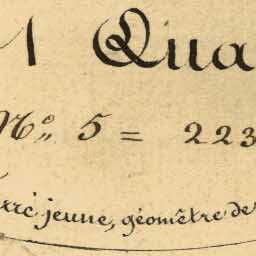 1 Qua
N.o 5 = 223
jeune, géomêtre de